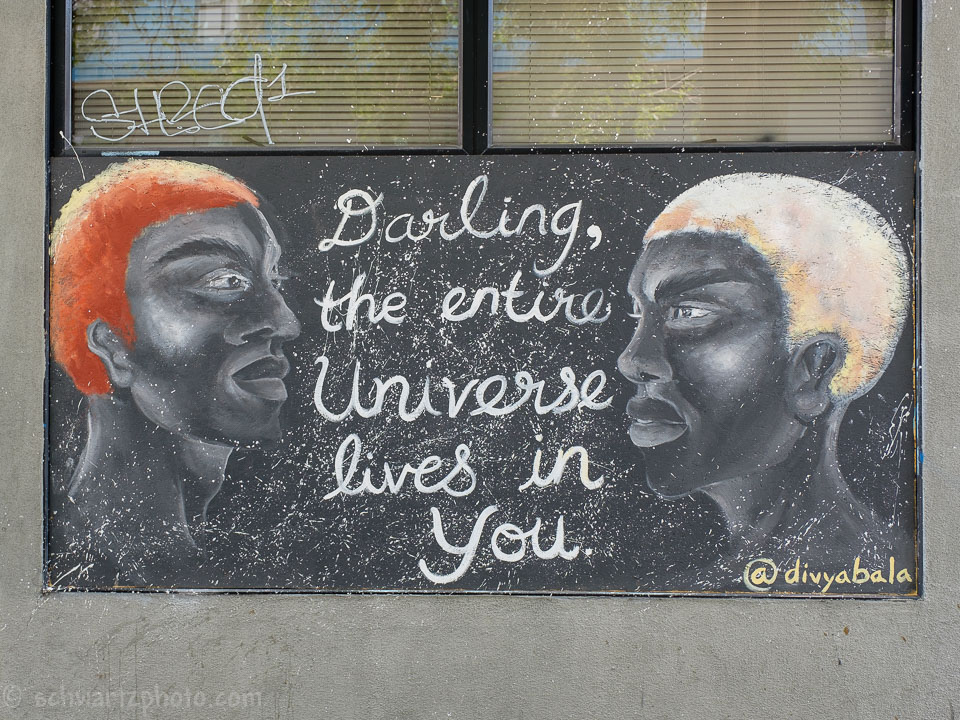 Darling,
the entire
Universe
lives in
You.
@divyabala
© schwartzphoto.com